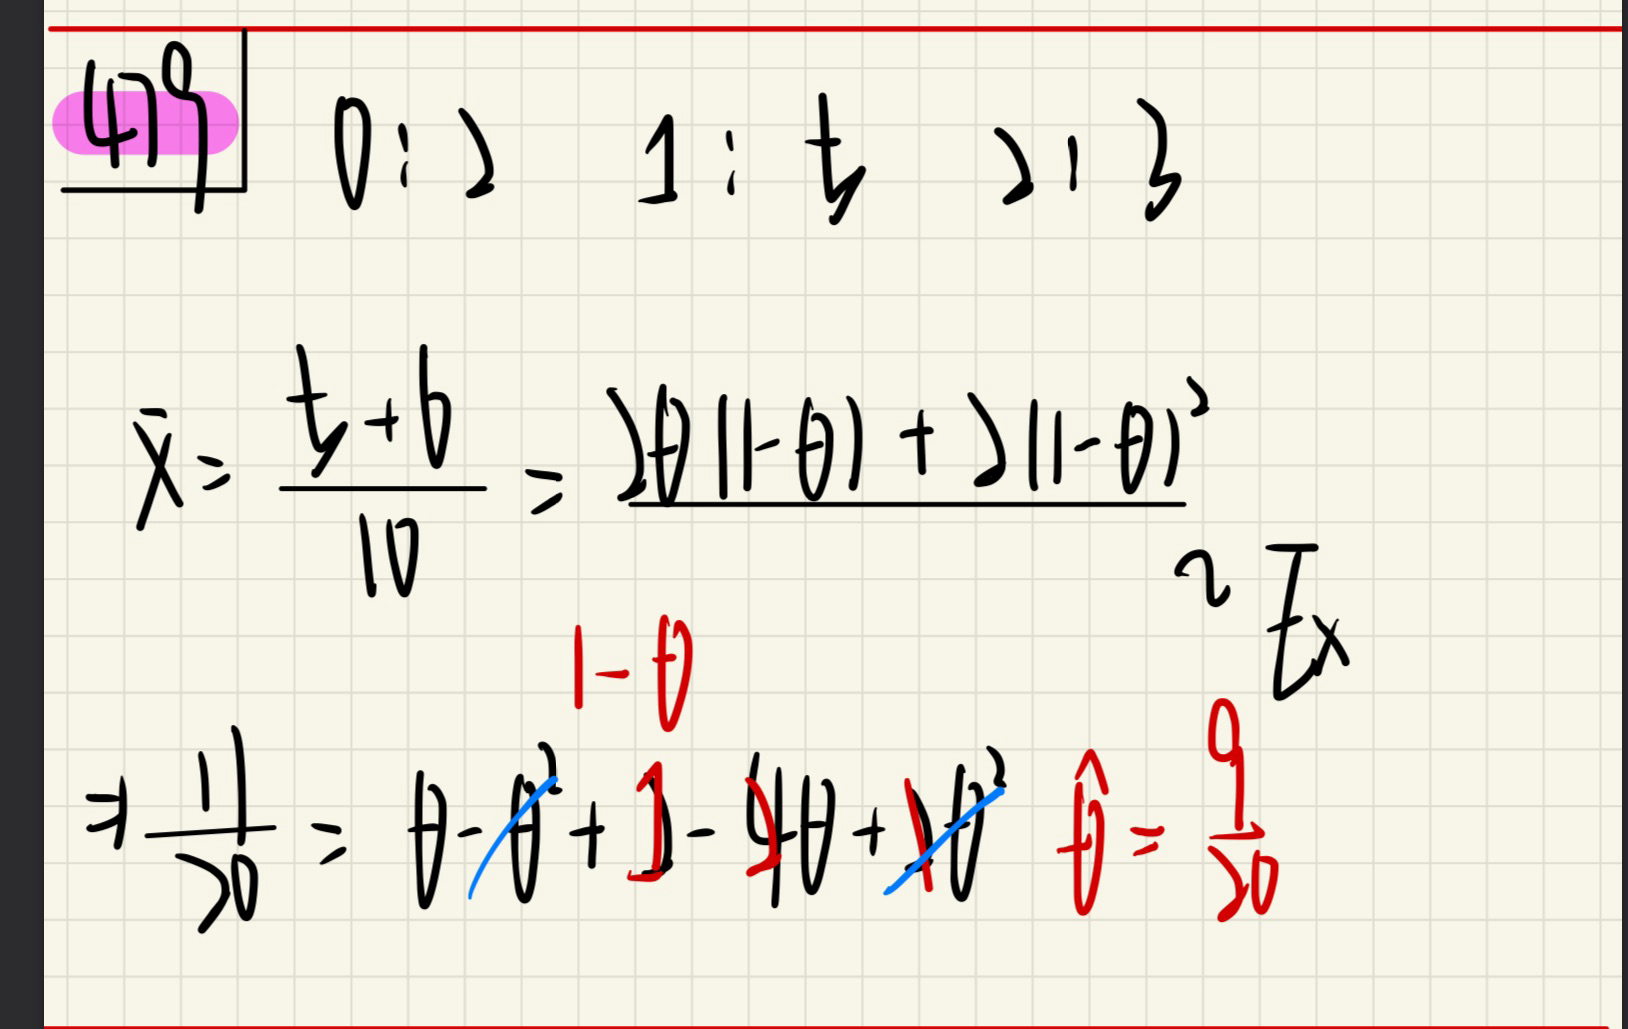 479 0:2 1:5 2:3
x̄ = (5+6)/10 = 2θ(1-θ) + 2(1-θ)²
~ Ex
1-θ
⇒ 11/20 = θ - θ² + 1 - 2θ + θ² θ̂ = 9/20